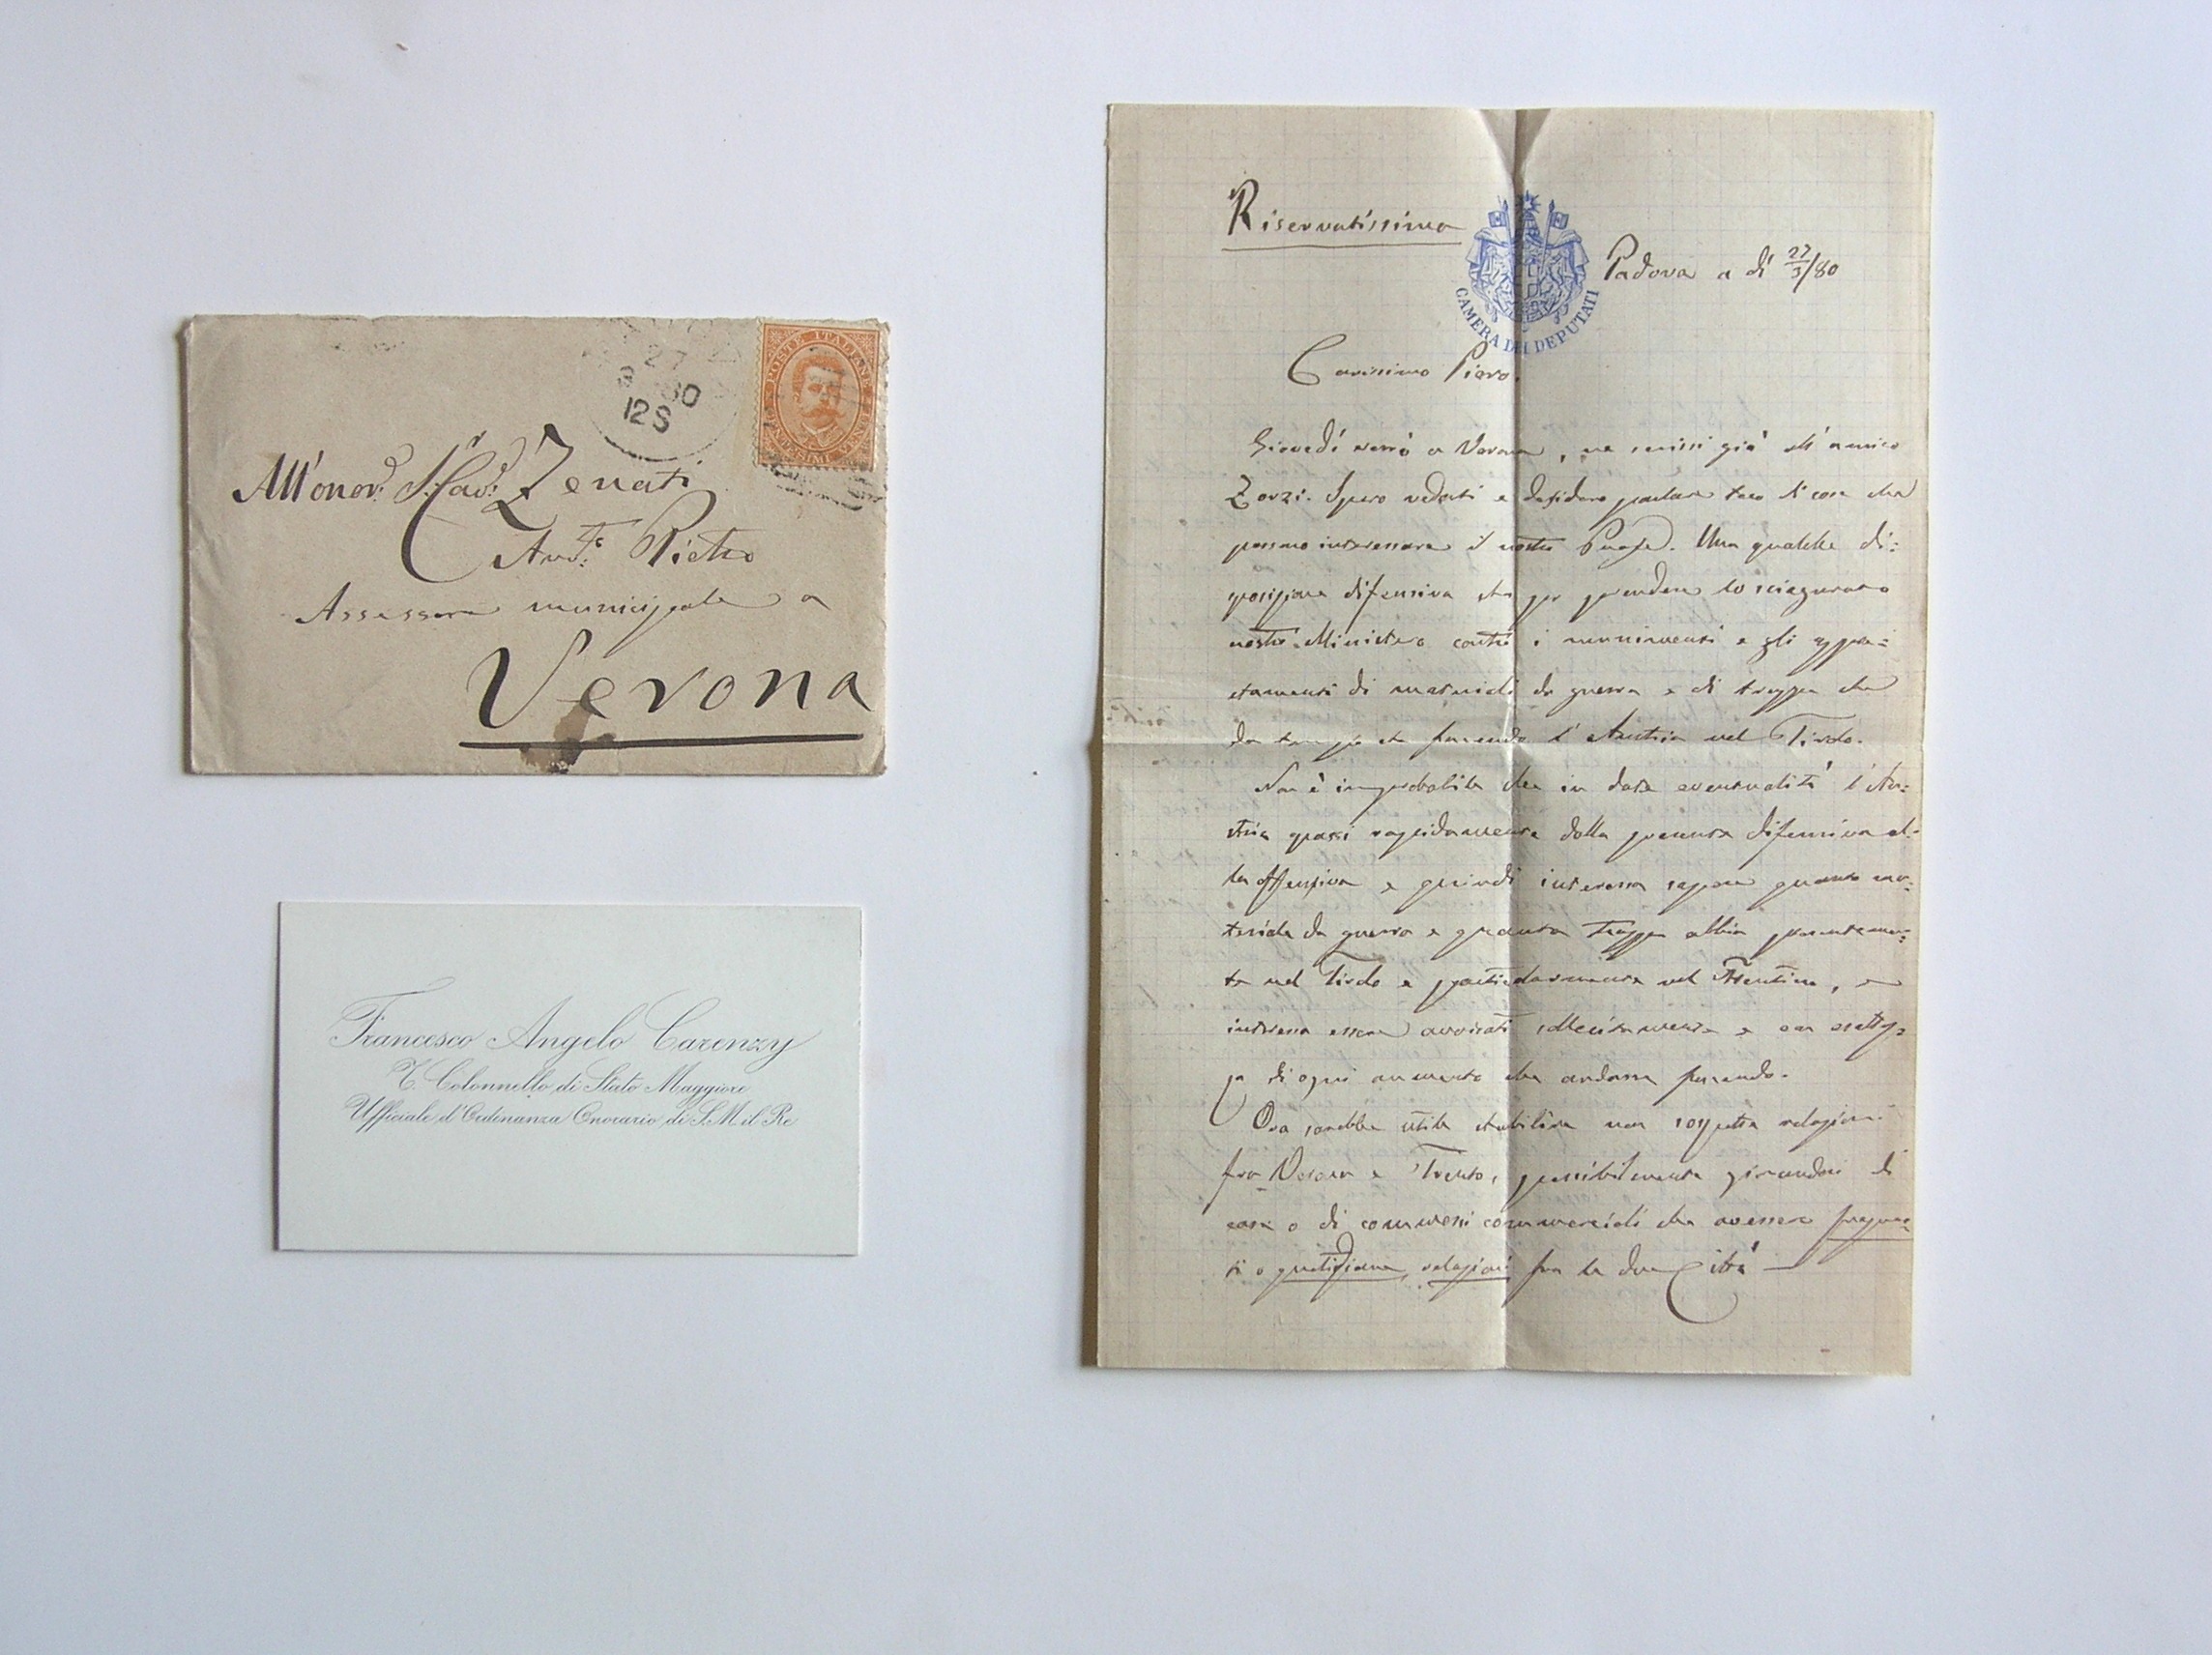 27
3 80
12 S
POSTE ITALIANE
All'onor. S. Cav. Zenati
Avv.to Pietro
Assessore municipale a
Verona
Francesco Angelo Carenzy
T. Colonnello di Stato Maggiore
Ufficiale d'Ordinanza Onorario di S.M. il Re
Riservatissima
CAMERA DEI DEPUTATI
Padova a dì 27/3/80
Carissimo Piero.
Giovedì verrò a Verona, ne scrissi già all'amico
Zorzi. Spero vederti e desidero parlare teco di cose che
possono interessare il nostro Paese. Una qualche di=
sposizione difensiva sta per prendere lo sciagurato
nostro Ministero contro i munimenti e gli appre=
stamenti di materiali da guerra e di truppa che
da tempo sta facendo l'Austria nel Tirolo.
Non è improbabile che in date eventualità l'Au=
stria passi rapidamente dalla presente difensiva al=
la offensiva e quindi interessa sapere quanto ma=
teriale da guerra e quanta truppa abbia presentemen=
te nel Tirolo e particolarmente nel Trentino, e
interessa essere avvisati sollecitamente e con esattez=
za di ogni aumento che andasse facendo.
Ora sarebbe utile stabilire non sospette relazioni
fra Verona e Trento, possibilmente giovandosi di
case o di commessi commerciali che avessero frequen=
ti o quotidiane relazioni fra le due Città